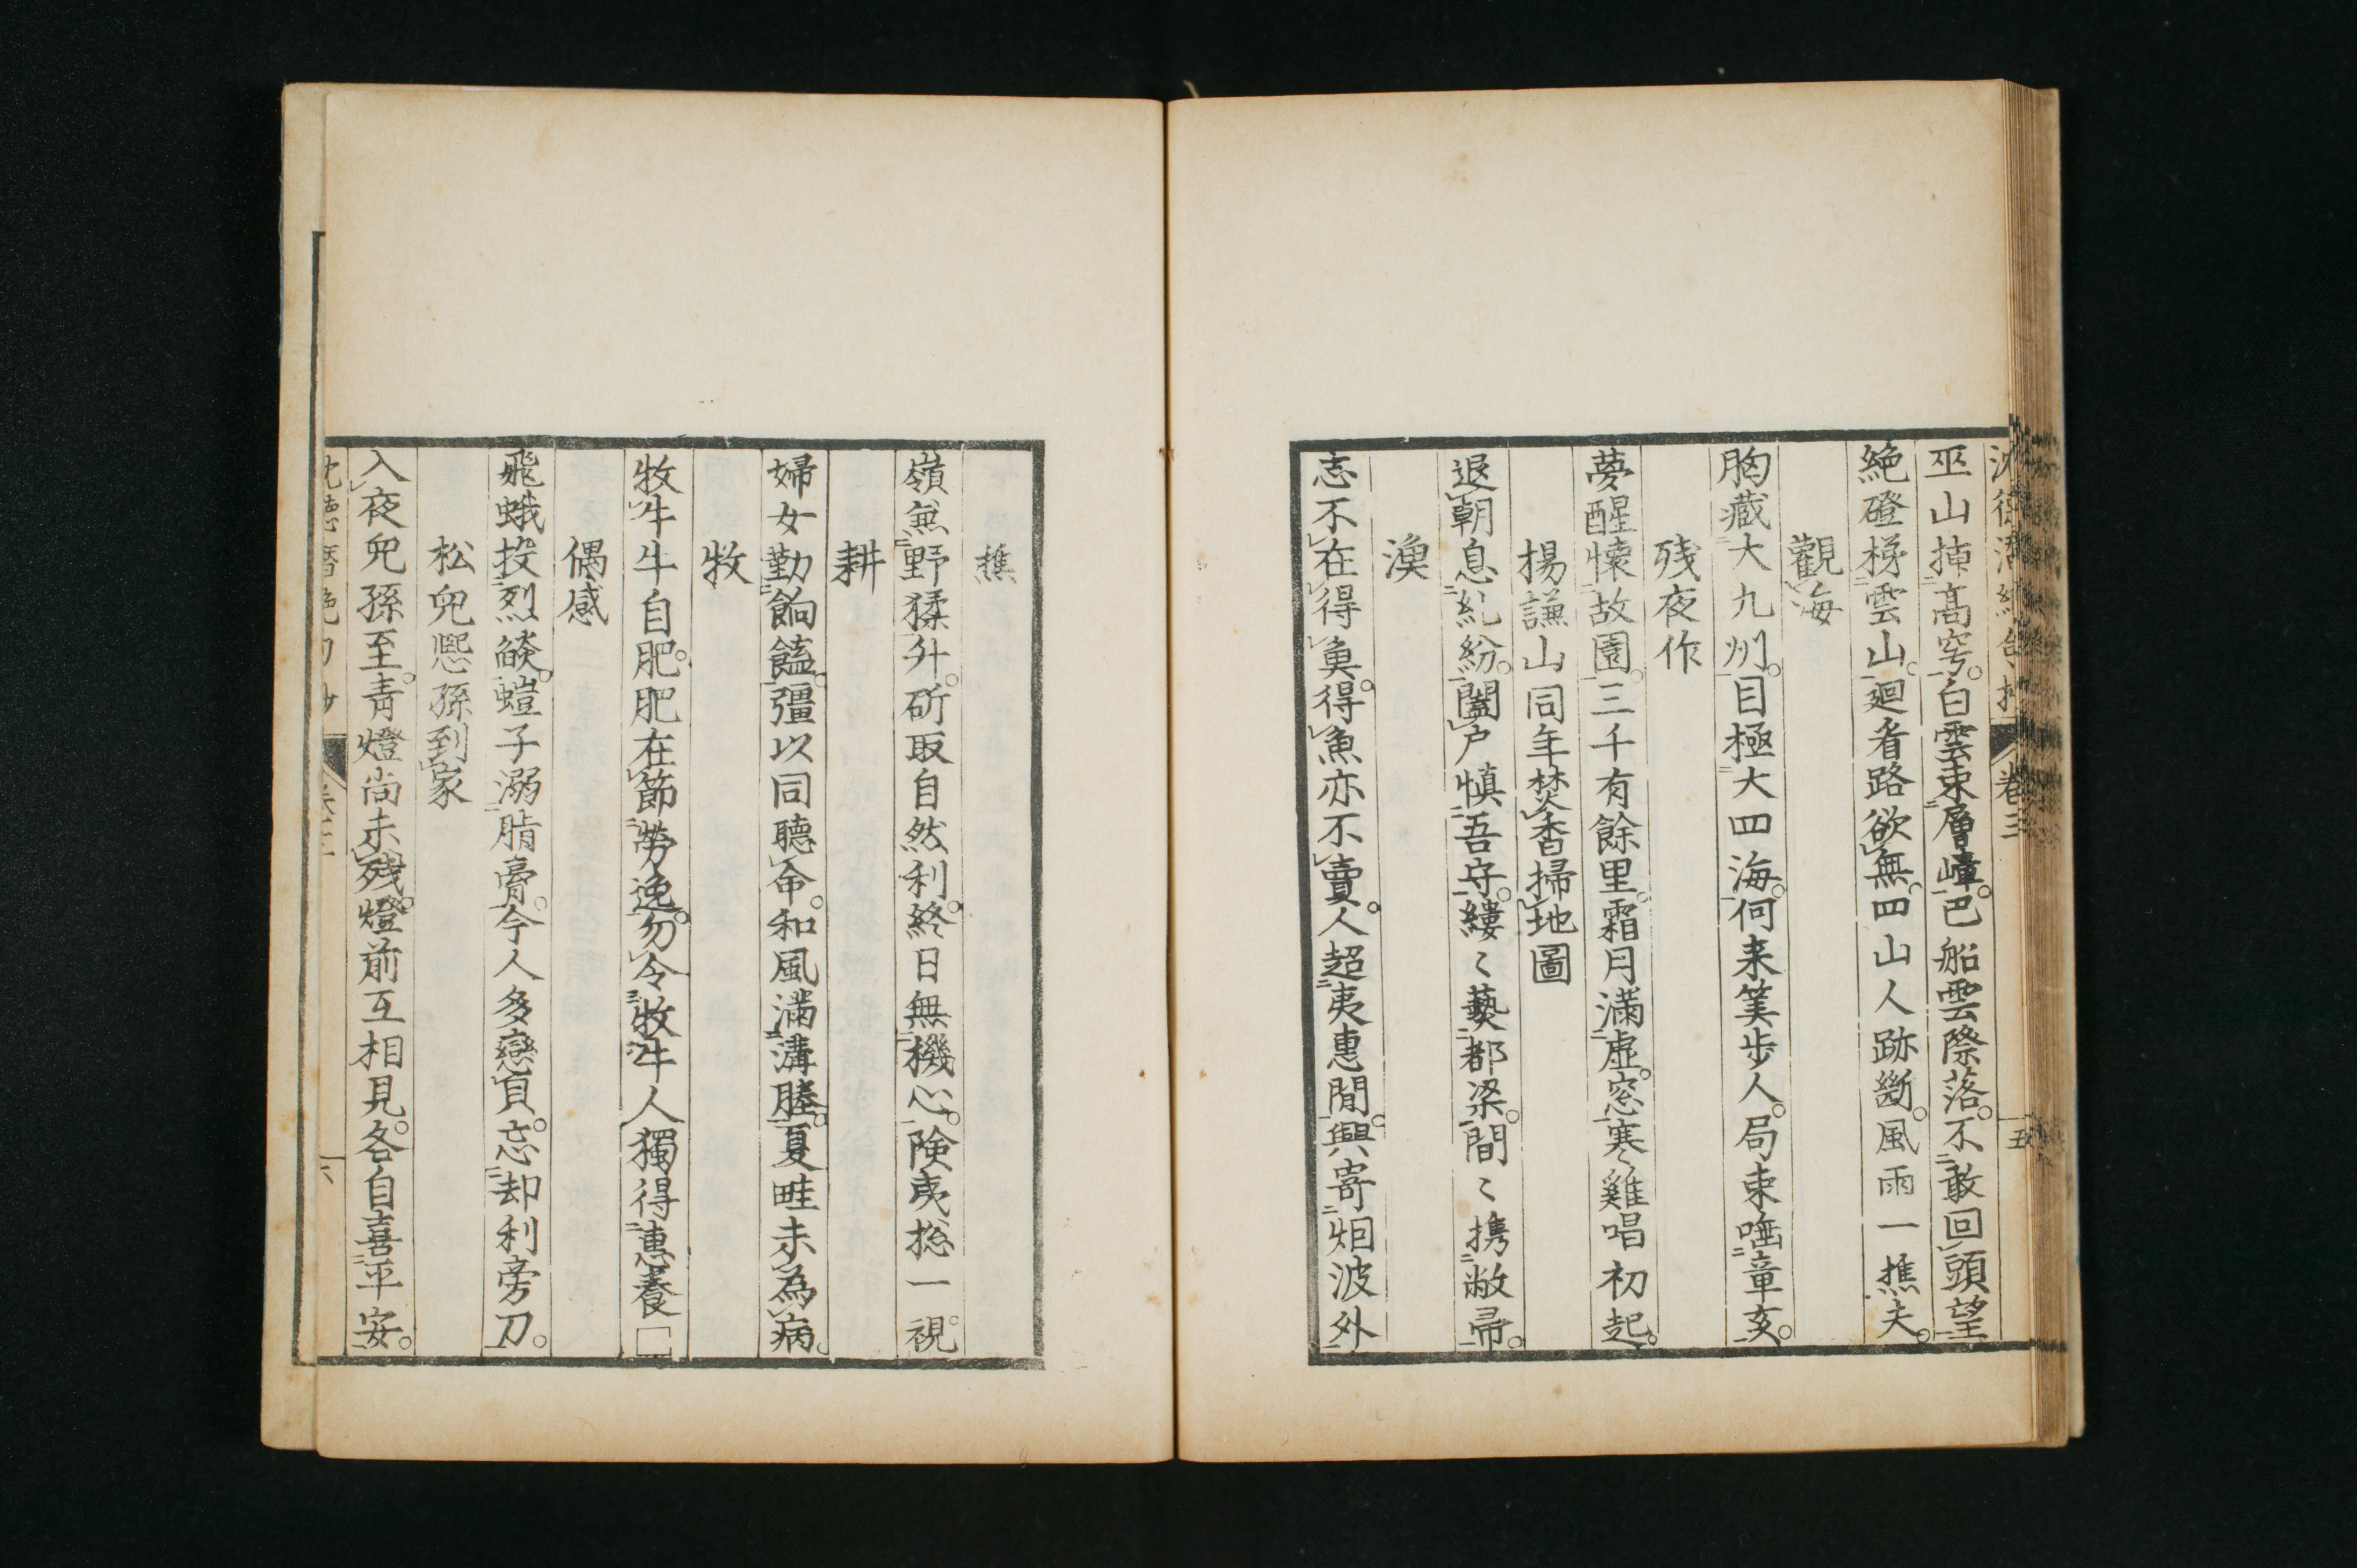 卷三
五
巫山掉高窄。白雲束層嶂。巴船雲際落。不敢回頭望
絶磴梯雲山。廻看路欲無。四山人跡斷。風雨一樵夫。
觀海
胸藏大九州。目極大四海。何来箕步人。局束嗤章亥。
残夜作
夢醒懐故園。三千有餘里。霜月滿虚窓。寒雞唱初起。
揚謙山同年焚香掃地圖
退朝息紛。闔户慎吾守。縷〻藝都梁。間〻携敝帚。
漁
志不在得魚。得魚亦不賣。人超夷惠間。興寄烟波外
樵
嶺無野猱升。斫取自然利。終日無機心。険夷捴一視。
耕
婦女勤餉饁。彊以同聽命。和風滿溝塍。夏畦未為病。
牧
牧牛牛自肥。肥在節勞逸。勿令牧牛人獨得惠養□
偶感
飛蛾投烈燄。螘子溺脂膏。今人多戀頁。忘却利旁刀。
松兒熈孫到家
入夜兒孫至。青燈尚未残。燈前互相見。各自喜平安。
六